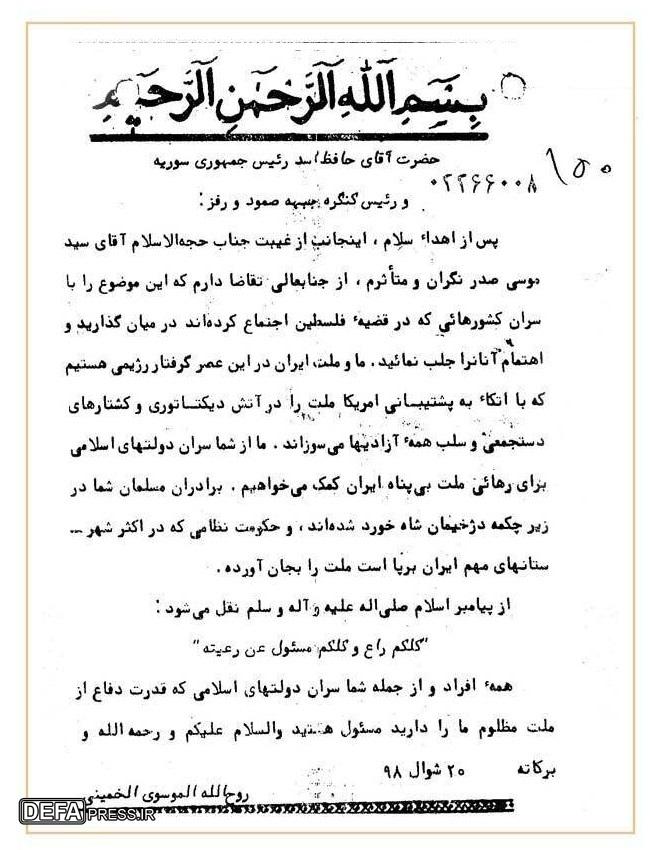 بِسْمِ اللهِ الرَّحْمٰنِ الرَّحيمِ
حضرت آقای حافظ اسد رئیس جمهوری سوریه
۱۵۰
۰۲۲۶۶۰۰۸
و رئیس کنگره جبهه صمود و رفز :
پس از اهداء سلام ، اینجانب از غیبت جناب حجه‌الاسلام آقای سید
موسی صدر نگران و متأثرم ، از جنابعالی تقاضا دارم که این موضوع را با
سران کشورهائی که در قضیهء فلسطین اجتماع کرده‌اند در میان گذارید و
اهتمام آنانرا جلب نمائید . ما و ملت ایران در این عصر گرفتار رژیمی هستیم
که با اتکاء به پشتیبانی امریکا ملت را در آتش دیکتاتوری و کشتارهای
دستجمعی و سلب همهء آزادیها می‌سوزاند . ما از شما سران دولتهای اسلامی
برای رهائی ملت بی‌پناه ایران کمک می‌خواهیم . برادران مسلمان شما در
زیر چکمه دژخیمان شاه خورد شده‌اند ، و حکومت نظامی که در اکثر شهر ــ
ستانهای مهم ایران برپا است ملت را بجان آورده .
از پیامبر اسلام صلی‌اله علیه و آله و سلم نقل می‌شود :
"کلکم راع و کلکم مسئول عن رعیته"
همهء افراد و از جمله شما سران دولتهای اسلامی که قدرت دفاع از
ملت مظلوم ما را دارید مسئول هستید والسلام علیکم و رحمه الله و
برکاته ۲۵ شوال ۹۸
روح الله الموسوی الخمینی
DEFAPRESS.IR